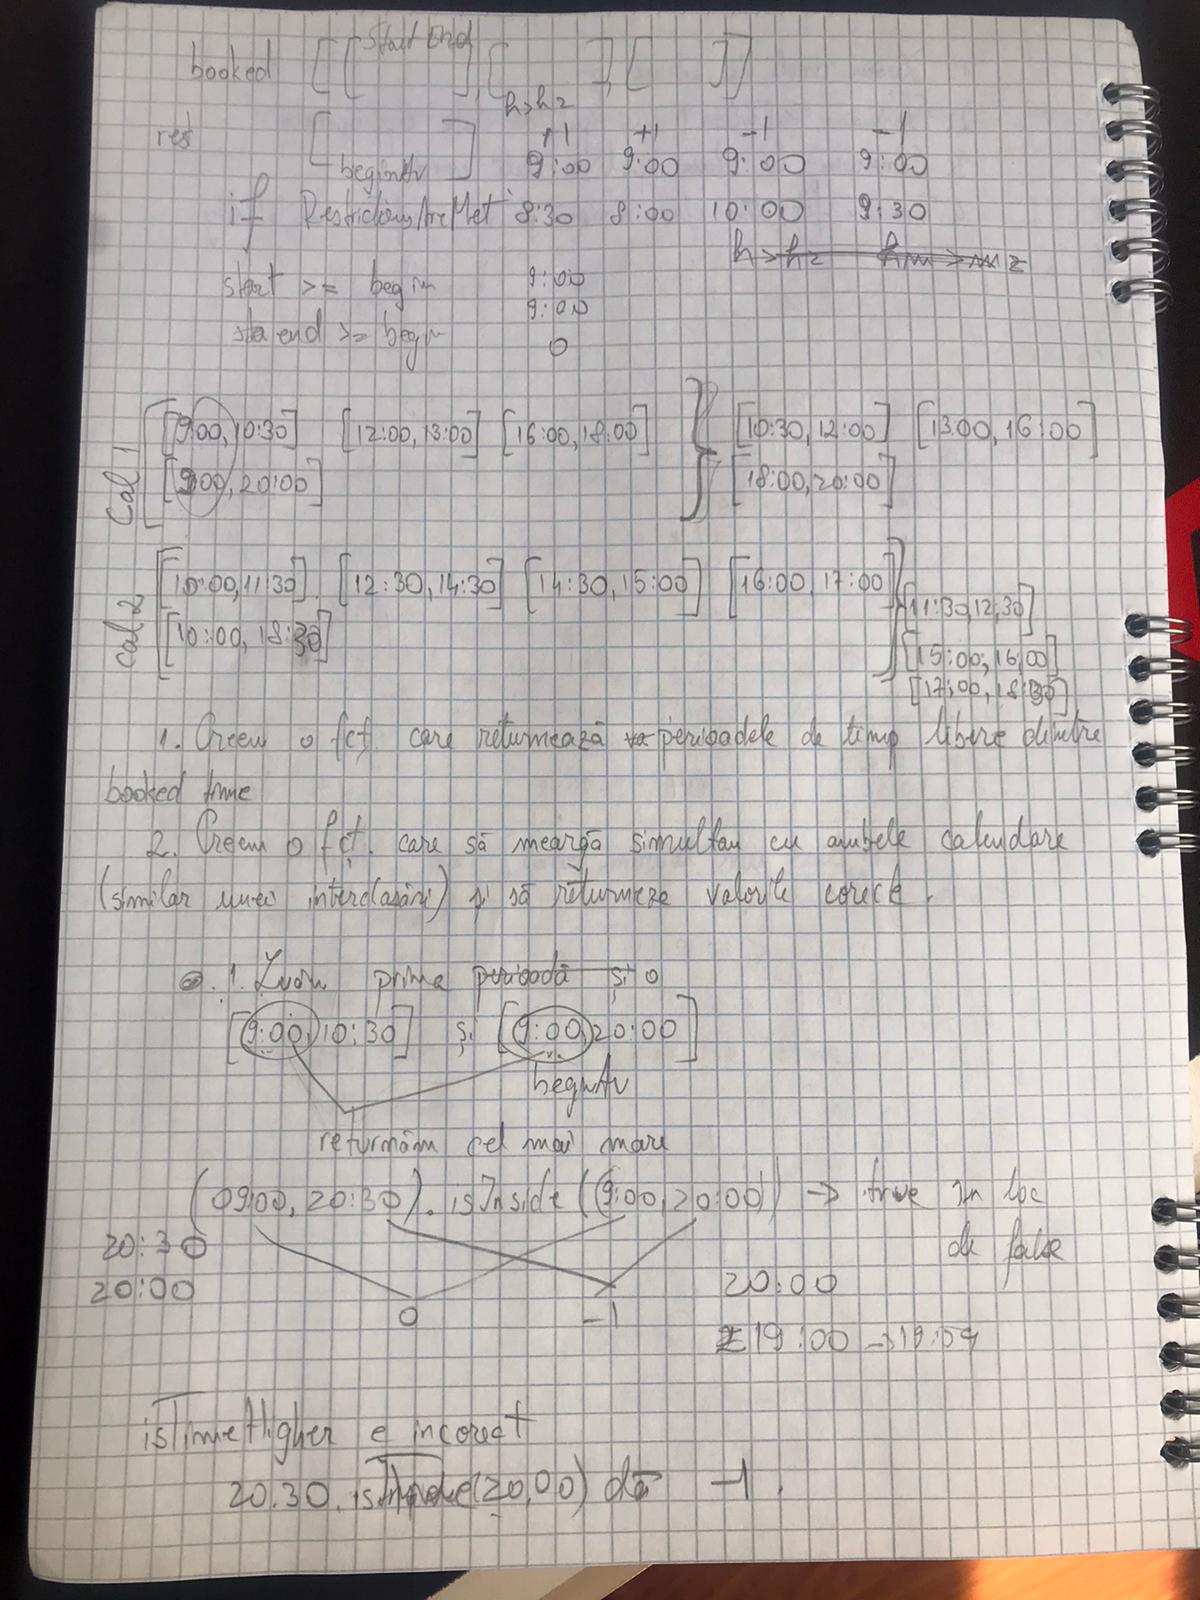 booked [[Start End], [ ], [ ]]
h>h2
res [ ] +1 +1 -1 -1
beginAv 9:00 9:00 9:00 9:00
if RestrictionsAreMet 8:30 8:00 10:00 9:30
h>h2 m>m2
start >= begin 9:00
9:00
end >= begin 0
Cal 1 [[9:00,10:30] [12:00,13:00] [16:00,18:00] } [10:30,12:00] [13:00,16:00]
[9:00,20:00] [18:00,20:00]
cal 2 [[10:00,11:30]. [12:30,14:30] [14:30,15:00] [16:00,17:00] } [11:30,12,30]
[10:00,18:30] [15:00,16:00]
[17:00,18:30]
1. Creem o fct. care returnează perioadele de timp libere dintre
booked time
2. Creem o fct. care să meargă simultan cu ambele calendare
(similar unei interclasări) și să returneze valorile corecte.
1. Luăm prima perioadă și o
[9:00,10:30] și [9:00,20:00]
beginAv
returnăm cel mai mare
(09:00, 20:30). isInside((9:00,20:00)) → true în loc
20:30 de false
20:00 20:00
0 -1
19:00 → 19:59
isTimeHigher e incorect
20.30. (20,00) dă -1.